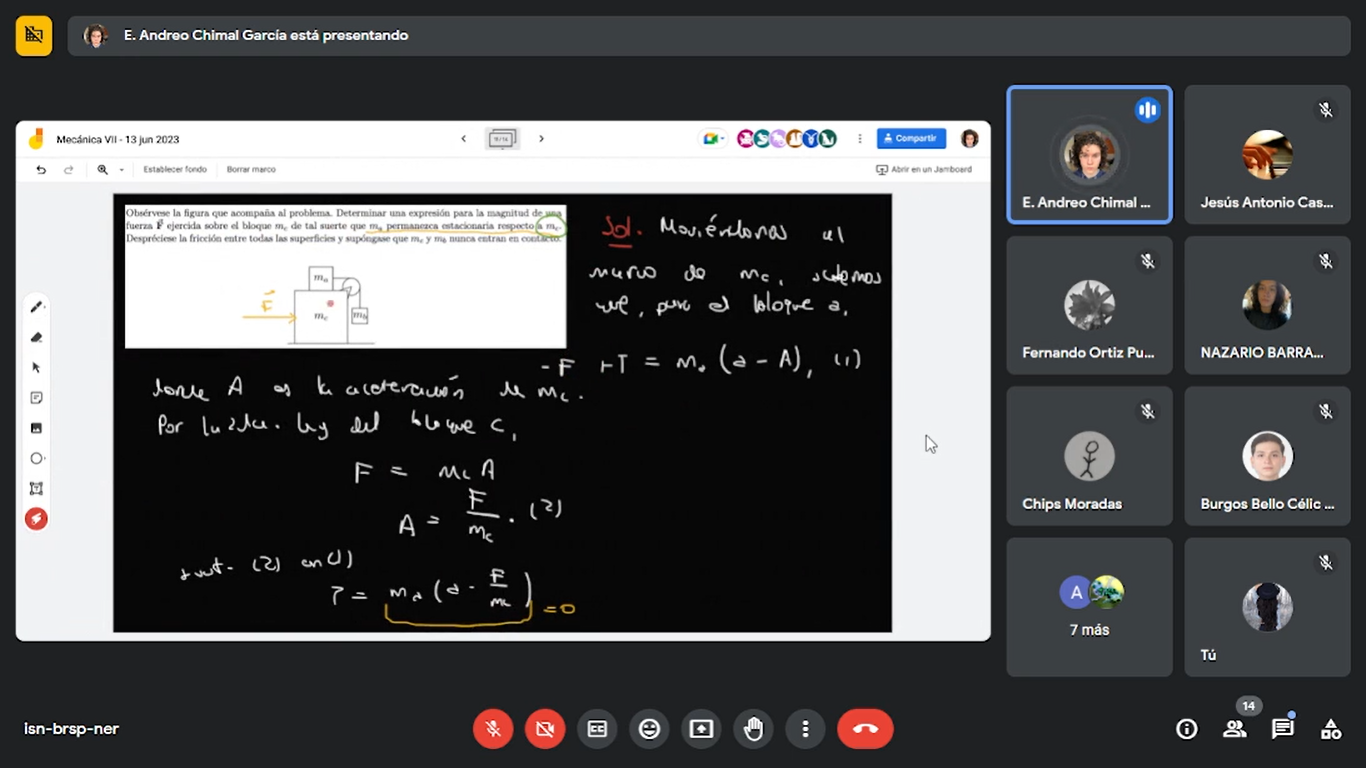 E. Andreo Chimal García está presentando
Mecánica VII - 13 jun 2023
11/14
Compartir
Establecer fondo
Borrar marco
Abrir en un Jamboard
Obsérvese la figura que acompaña al problema. Determinar una expresión para la magnitud de una
fuerza F⃗ ejercida sobre el bloque m_c de tal suerte que m_a permanezca estacionaria respecto a m_c.
Despréciese la fricción entre todas las superficies y supóngase que m_c y m_b nunca entran en contacto.
m_a
F⃗
m_c
m_b
Sol. Moviéndonos al
marco de m_c, sabemos
que, para el bloque a,
-F +T = m_a (a - A), (1)
donde A es la aceleración de m_c.
Por la 2da. ley del bloque C,
F = m_c A
A = F/m_c . (2)
sust. (2) en (1)
m_a (a - F/m_c) = 0
E. Andreo Chimal ...
Jesús Antonio Cas...
Fernando Ortiz Pu...
NAZARIO BARRA...
Chips Moradas
Burgos Bello Célic ...
A
7 más
Tú
isn-brsp-ner
14